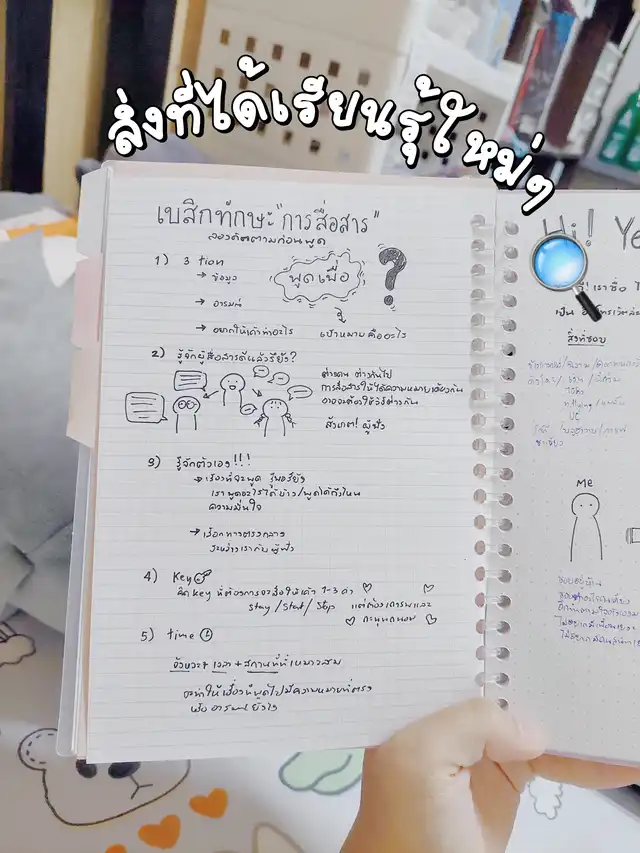 สิ่งที่ได้เรียนรู้ใหม่ๆ
เบสิกทักษะ "การสื่อสาร"
ก่อนพูด
1) 3 tion
→ ข้อมูล
พูดเพื่อ ?
→ อารมณ์
→ อยากให้เค้าทำอะไร
รู้
เป้าหมายคืออะไร
2) รู้จักผู้สื่อสารดีแล้วรึยัง?
ต่างคน ต่างกันไป
การสื่อสารให้ได้ความหมายเดียวกัน
อาจจะต้องใช้วิธีต่างกัน
สังเกต! ผู้ฟัง
3) รู้จักตัวเอง!!!
→ เรื่องที่จะพูด รู้พอรึยัง
เราพูดอะไรได้บ้าง/พูดได้ถึงไหน
ความมั่นใจ
→ เลือกทางตรงกลาง
ระหว่างเรากับผู้ฟัง
4) Key
คิด key ที่ต้องการจะสื่อให้เค้า 1-3 คำ
Stay / Start / Stop แต่ต้องเคารพและ
ถนอม
5) time
จังหวะ + เวลา + สถานที่ที่เหมาะสม
จะทำให้เรื่องที่พูดไปมีความหมายที่ตรง
หรือ อารมณ์
Hi! Ye
เราชื่อ
เป็น
สิ่งที่ชอบ
Me